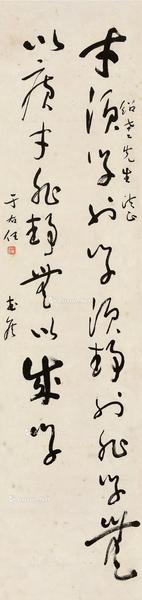 先生法正
才須學也學須靜也非學無
以廣才非靜無以成學
于右任